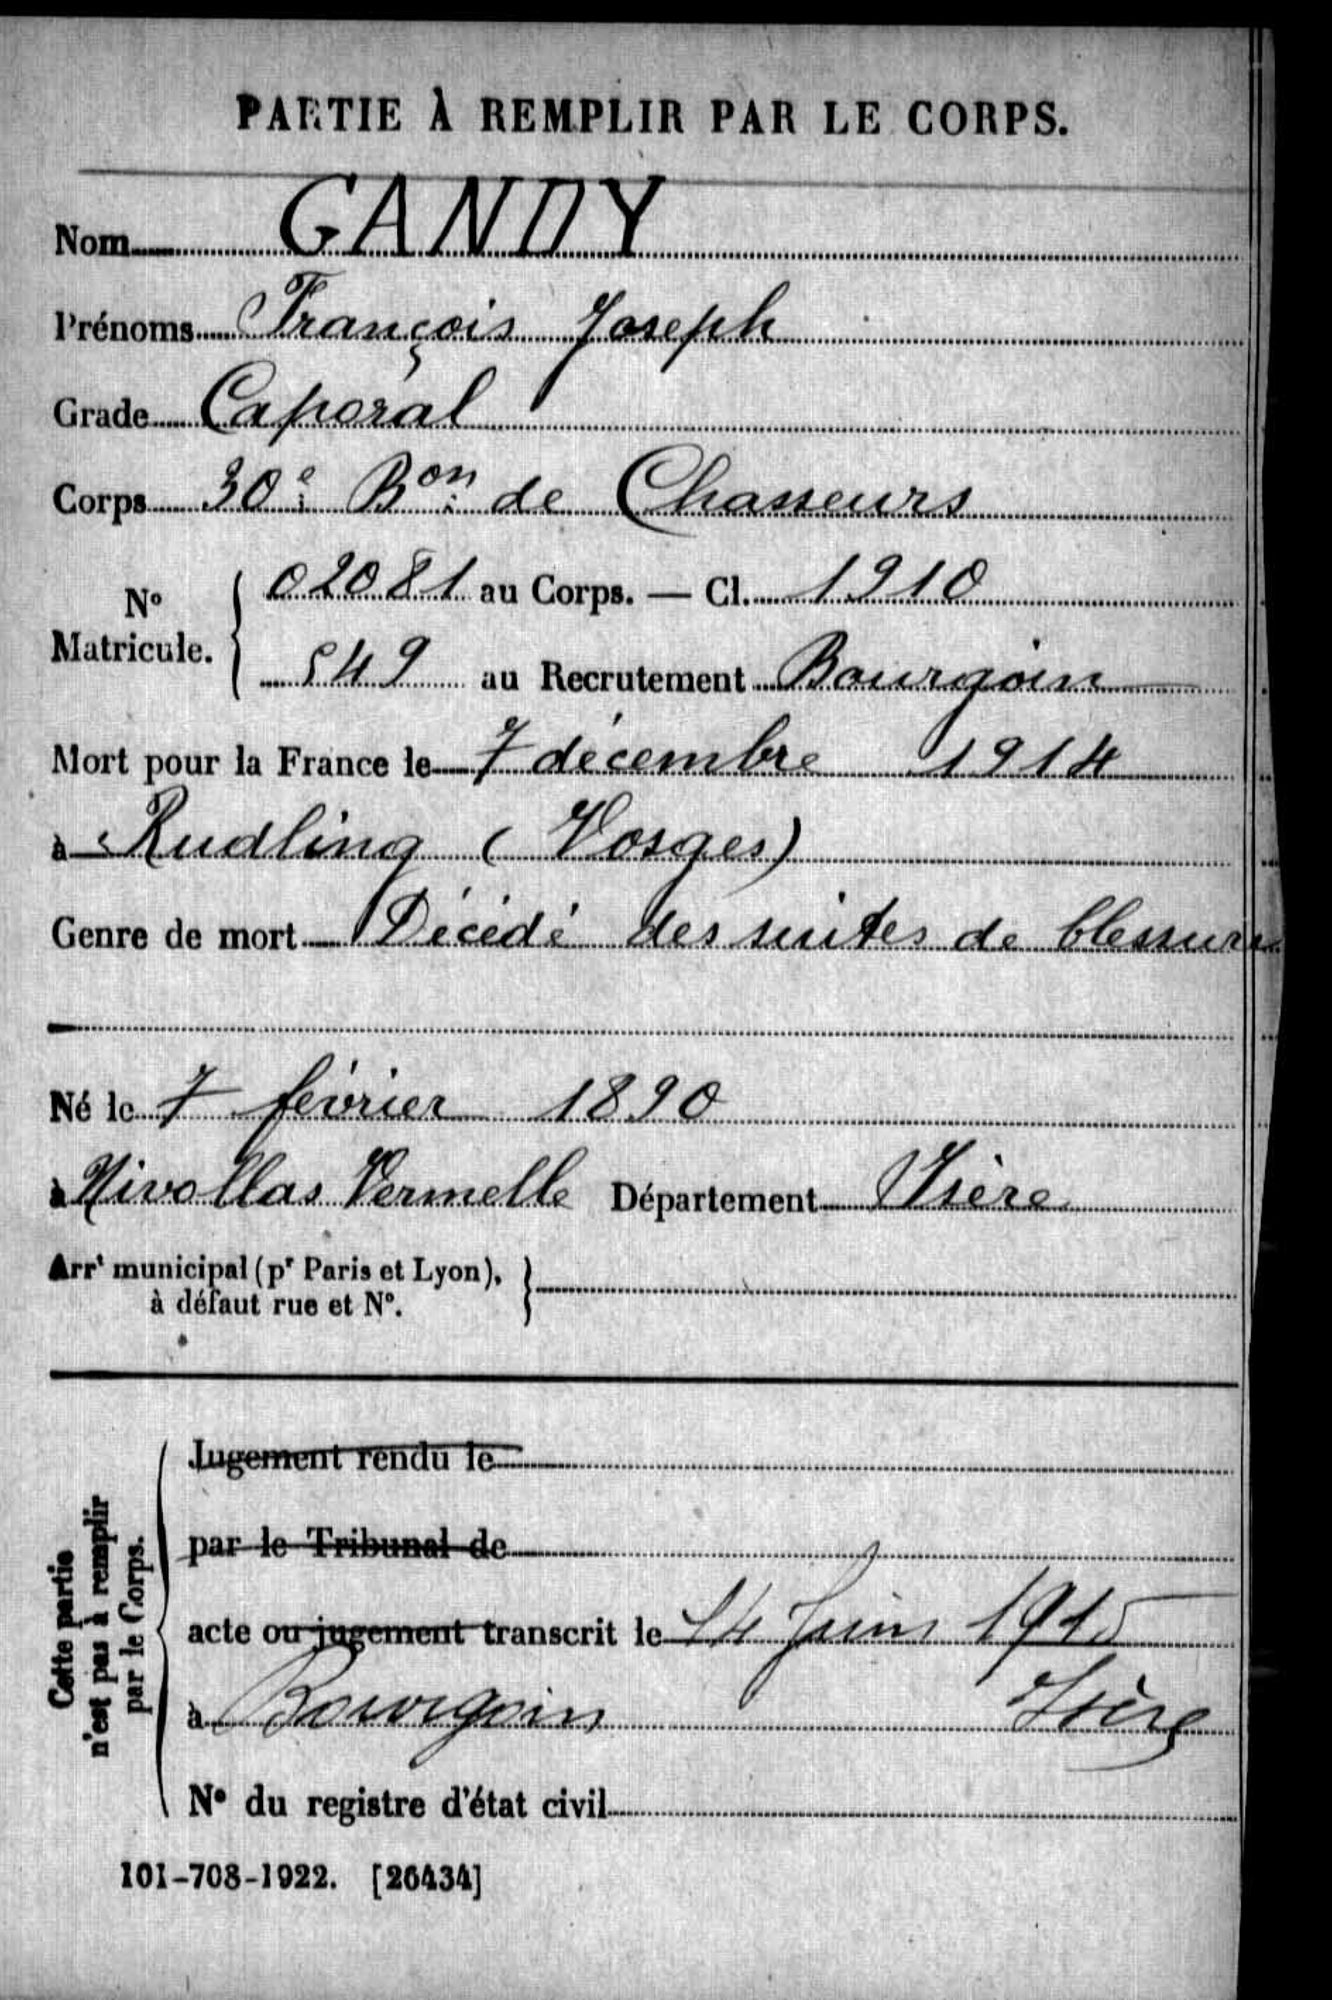 PARTIE À REMPLIR PAR LE CORPS.
Nom GANDY
Prénoms François Joseph
Grade Caporal
Corps 30e Bon de Chasseurs
No Matricule. 02081 au Corps. — Cl. 1910
549 au Recrutement Bourgoin
Mort pour la France le 7 décembre 1914
à Rudling (Vosges)
Genre de mort Décédé des suites de blessures
Né le 7 février 1890
à Nivollas Vermelle Département Isère
Arrt municipal (pr Paris et Lyon),
à défaut rue et No.
Cette partie
n'est pas à remplir
par le Corps.
Jugement rendu le
par le Tribunal de
acte ou jugement transcrit le 14 Juin 1915
à Bourgoin Isère
No du registre d'état civil
101-708-1922. [26434]